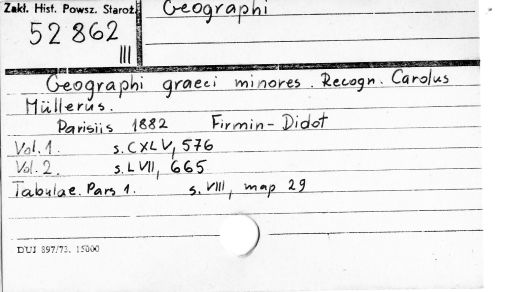 Zakł. Hist. Powsz. Staroż.
Geographi
52 862
III
Geographi graeci minores. Recogn. Carolus
Müllerus.
Parisiis 1882 Firmin-Didot
Vol. 1. s. CXLV, 576
Vol. 2. s. LVII, 665
Tabulae. Pars 1. s. VIII, map 29
DUJ 897/73. 15000